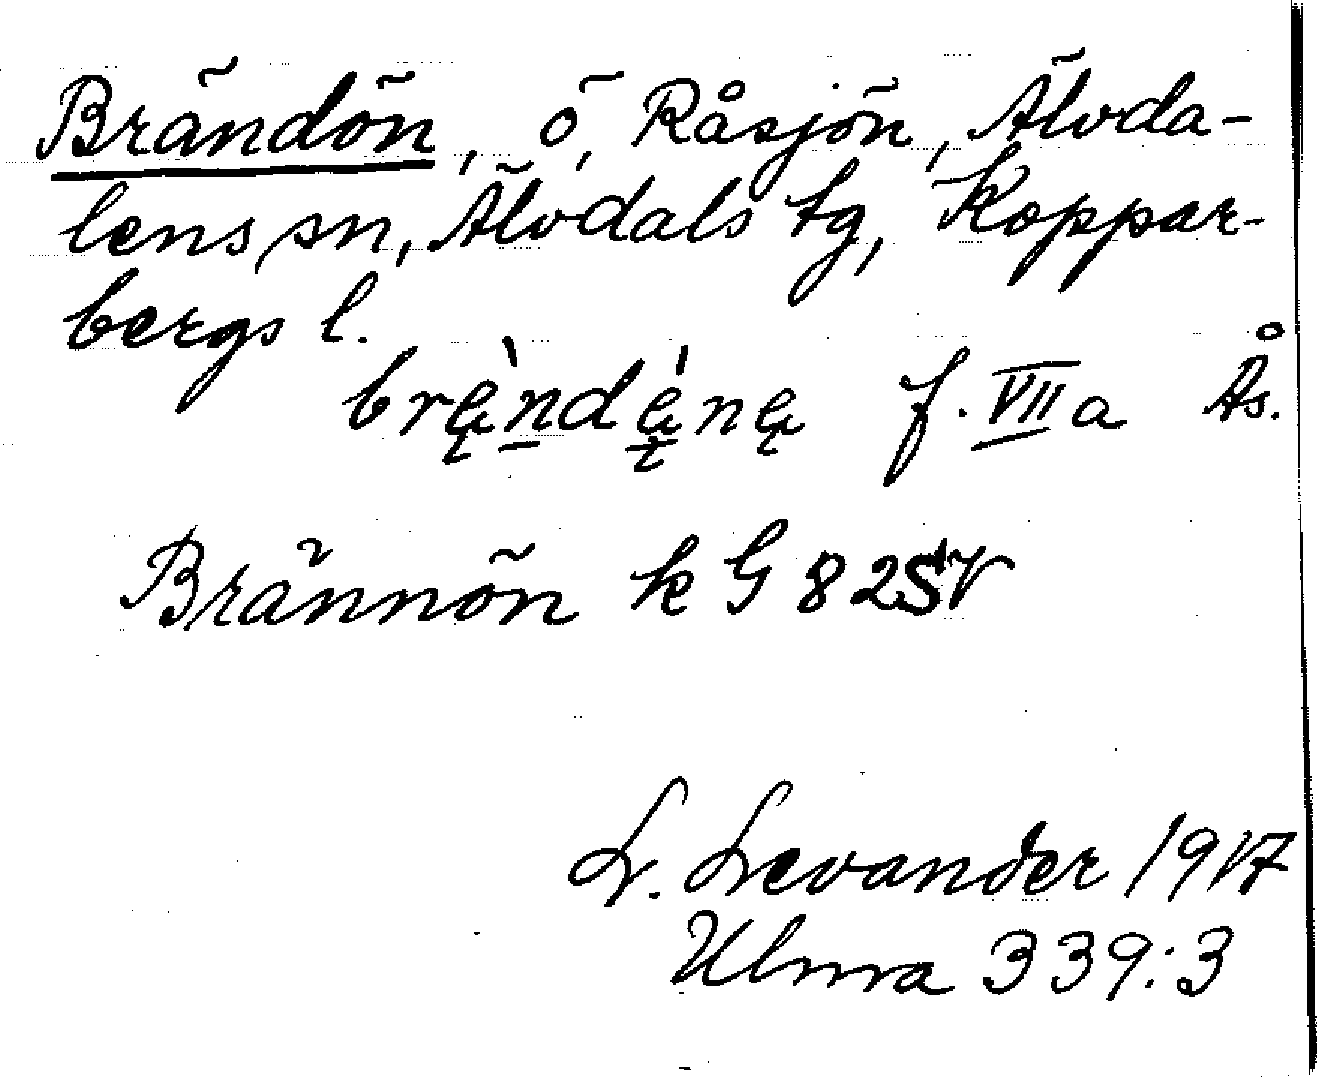 Brändön, ö, Råsjön, Älvda-
lens sn, Älvdals tg, Koppar-
bergs l.
bręndęnę f. VII a Ås.
Brännön k G 82SV
L. Levander 1917
Ulma 339:3